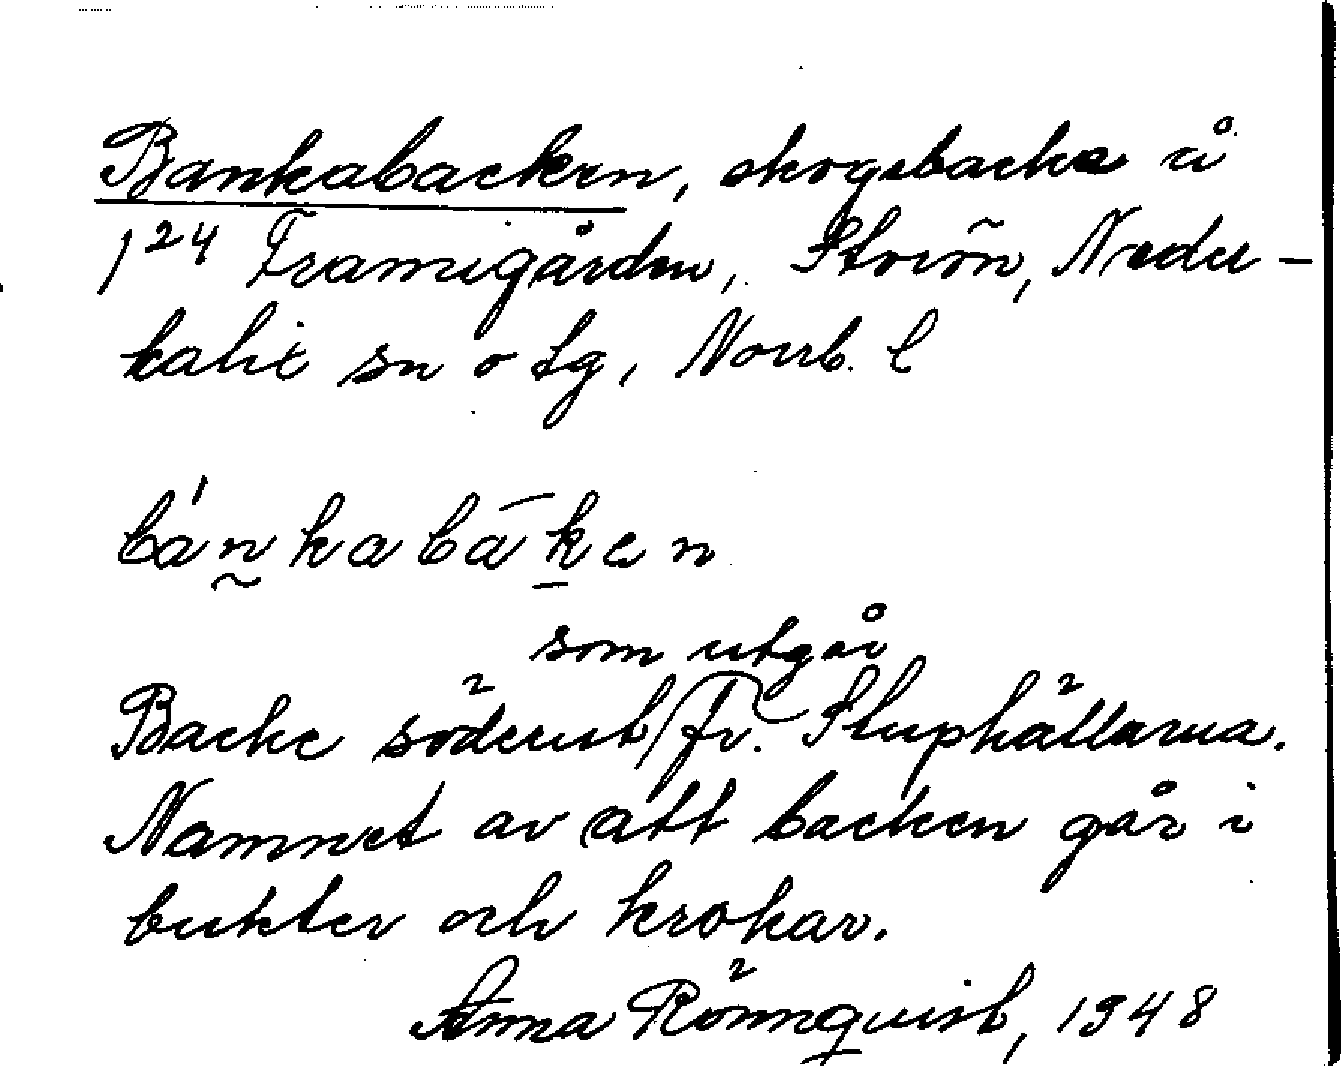 Bankabacken, skogsbacke å
1²⁴ Framigården, Storön, Neder-
kalix sn o tg, Norrb. l
bánkabāken
som utgår
Backe söderut fr. Sluphällarna.
Namnet av att backen går i
bukter och krokar.
Anna Rönnquist, 1948